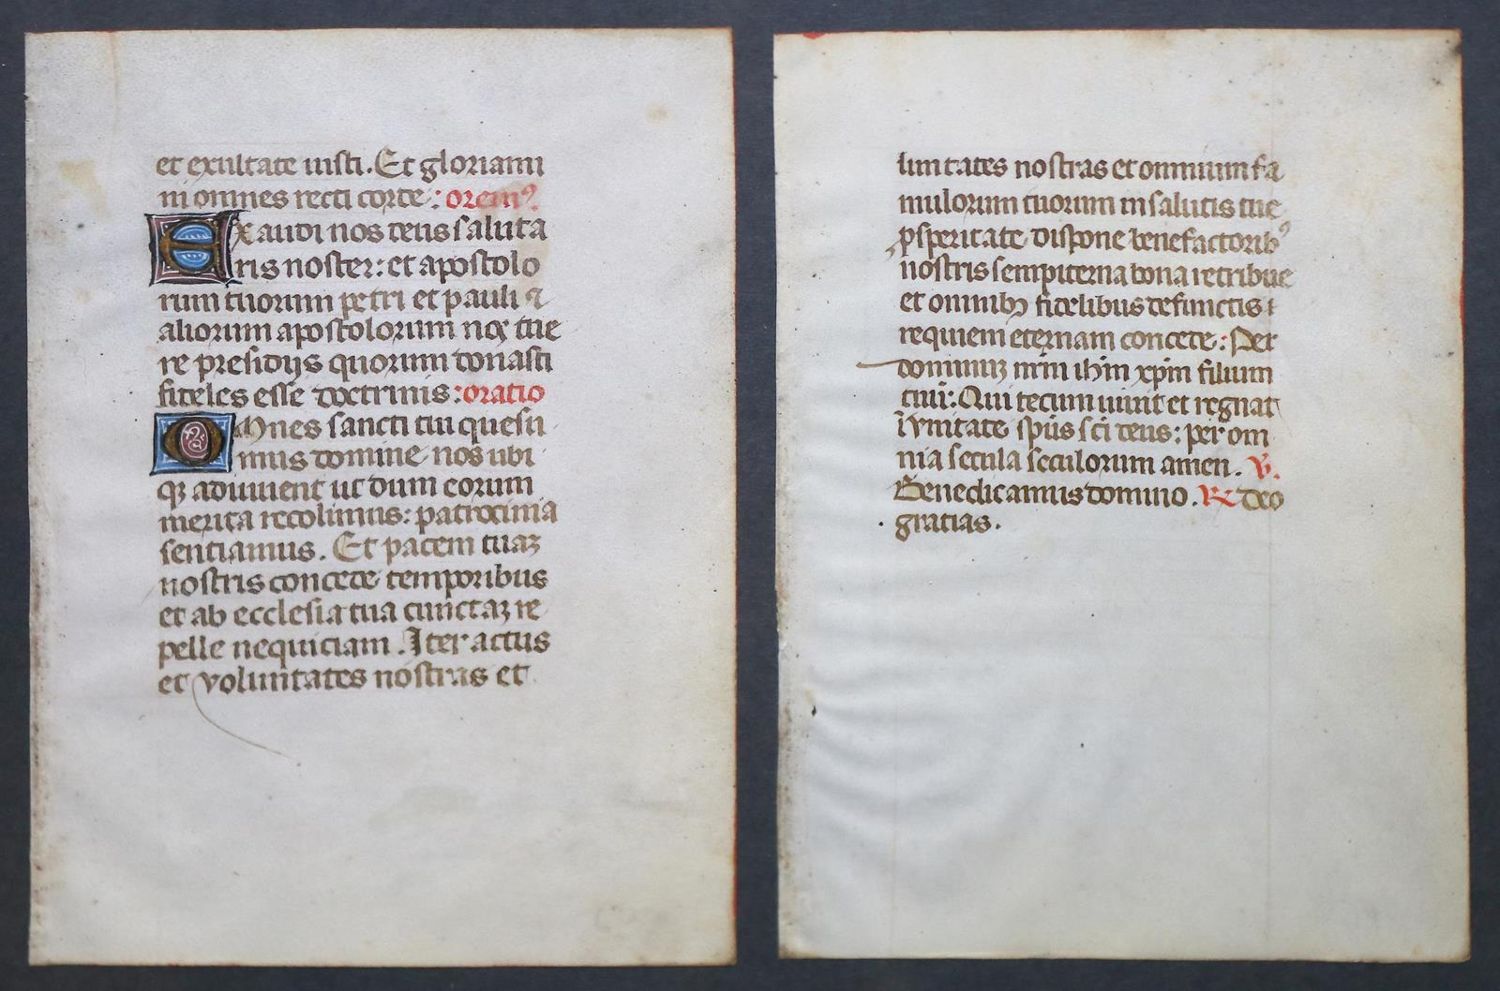 et exultate iusti. Et gloriami
ni omnes recti corde: oremꝰ.
Exaudi nos deus saluta
ris noster: et apostolo
rum tuorum petri et pauli ⁊
aliorum apostolorum nos tue
re presidijs quorum donasti
fideles esse doctrinis: oratio
Omnes sancti tui quesu
mus domine nos ubi
qꝫ adiuuent ut dum eorum
merita recolimus: patrocinia
sentiamus. Et pacem tuaꝫ
nostris concede temporibus
et ab ecclesia tua cunctaꝫ re
pelle nequiciam. Iter actus
et voluntates nostras et
luntates nostras et omnium fa
mulorum tuorum in salutis tue
ꝓsperitate dispone benefactoribꝰ
nostris sempiterna bona retribue
et omnibꝫ fidelibus defunctis
requiem eternam concede: Per
dominuꝫ nr̄m ih̄m xp̄m filium
tuū: Qui tecum uiuit et regnat
ī vnitate sp̄us sc̄i deus: per om
nia secula seculorum amen. ℣.
Benedicamus domino. ℟ deo
gratias.